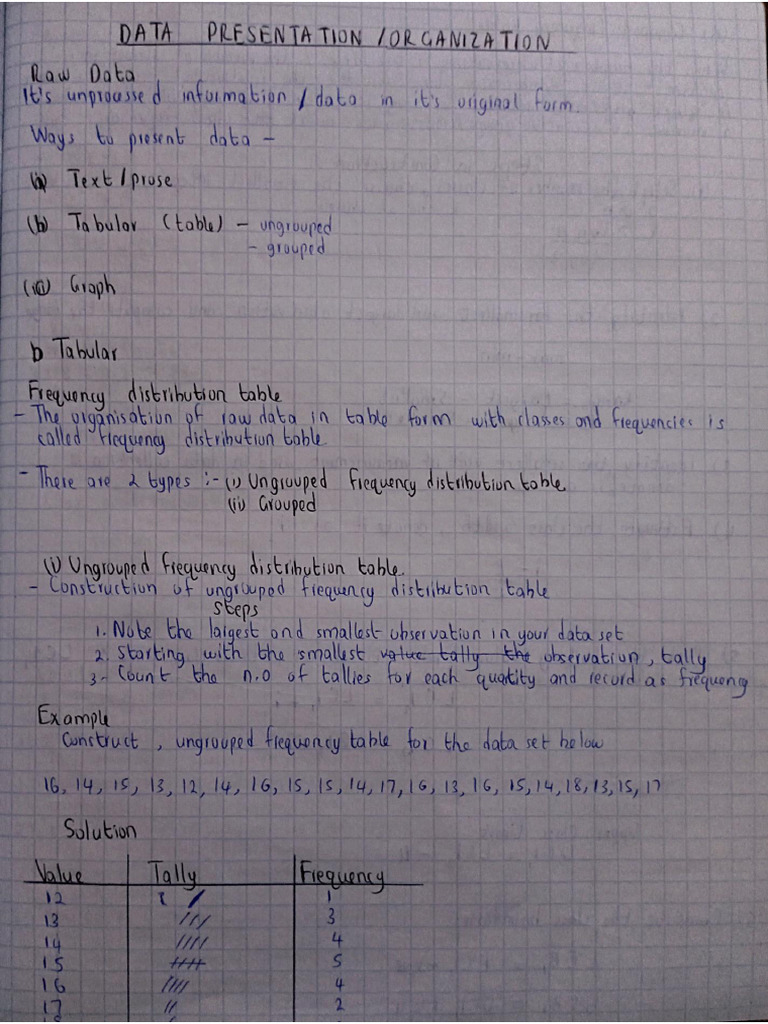 DATA PRESENTATION / ORGANIZATION
Raw Data
It's unprocessed information / data in it's original form.
Ways to present data -
(a) Text/prose
(b) Tabular (table) - ungrouped
- grouped
Graph
b Tabular
Frequency distribution table
- The organisation of raw data in table form with classes and frequencies is
called frequency distribution table
- There are 2 types :- (i) Ungrouped frequency distribution table
(ii) Grouped
(i) Ungrouped frequency distribution table.
- Construction of ungrouped frequency distribution table
steps
1. Note the largest and smallest observation in your data set
2. Starting with the smallest value tally the observation, tally
3- Count the n.o of tallies for each quantity and record as frequency
Example
Construct, ungrouped frequency table for the data set below
16, 14, 15, 13, 12, 14, 16, 15, 15, 14, 17, 16, 13, 16, 15, 14, 18, 13, 15, 17
Solution
Value Tally Frequency
12 / 1
13 /// 3
14 //// 4
15 //// 5
16 //// 4
17 // 2
18